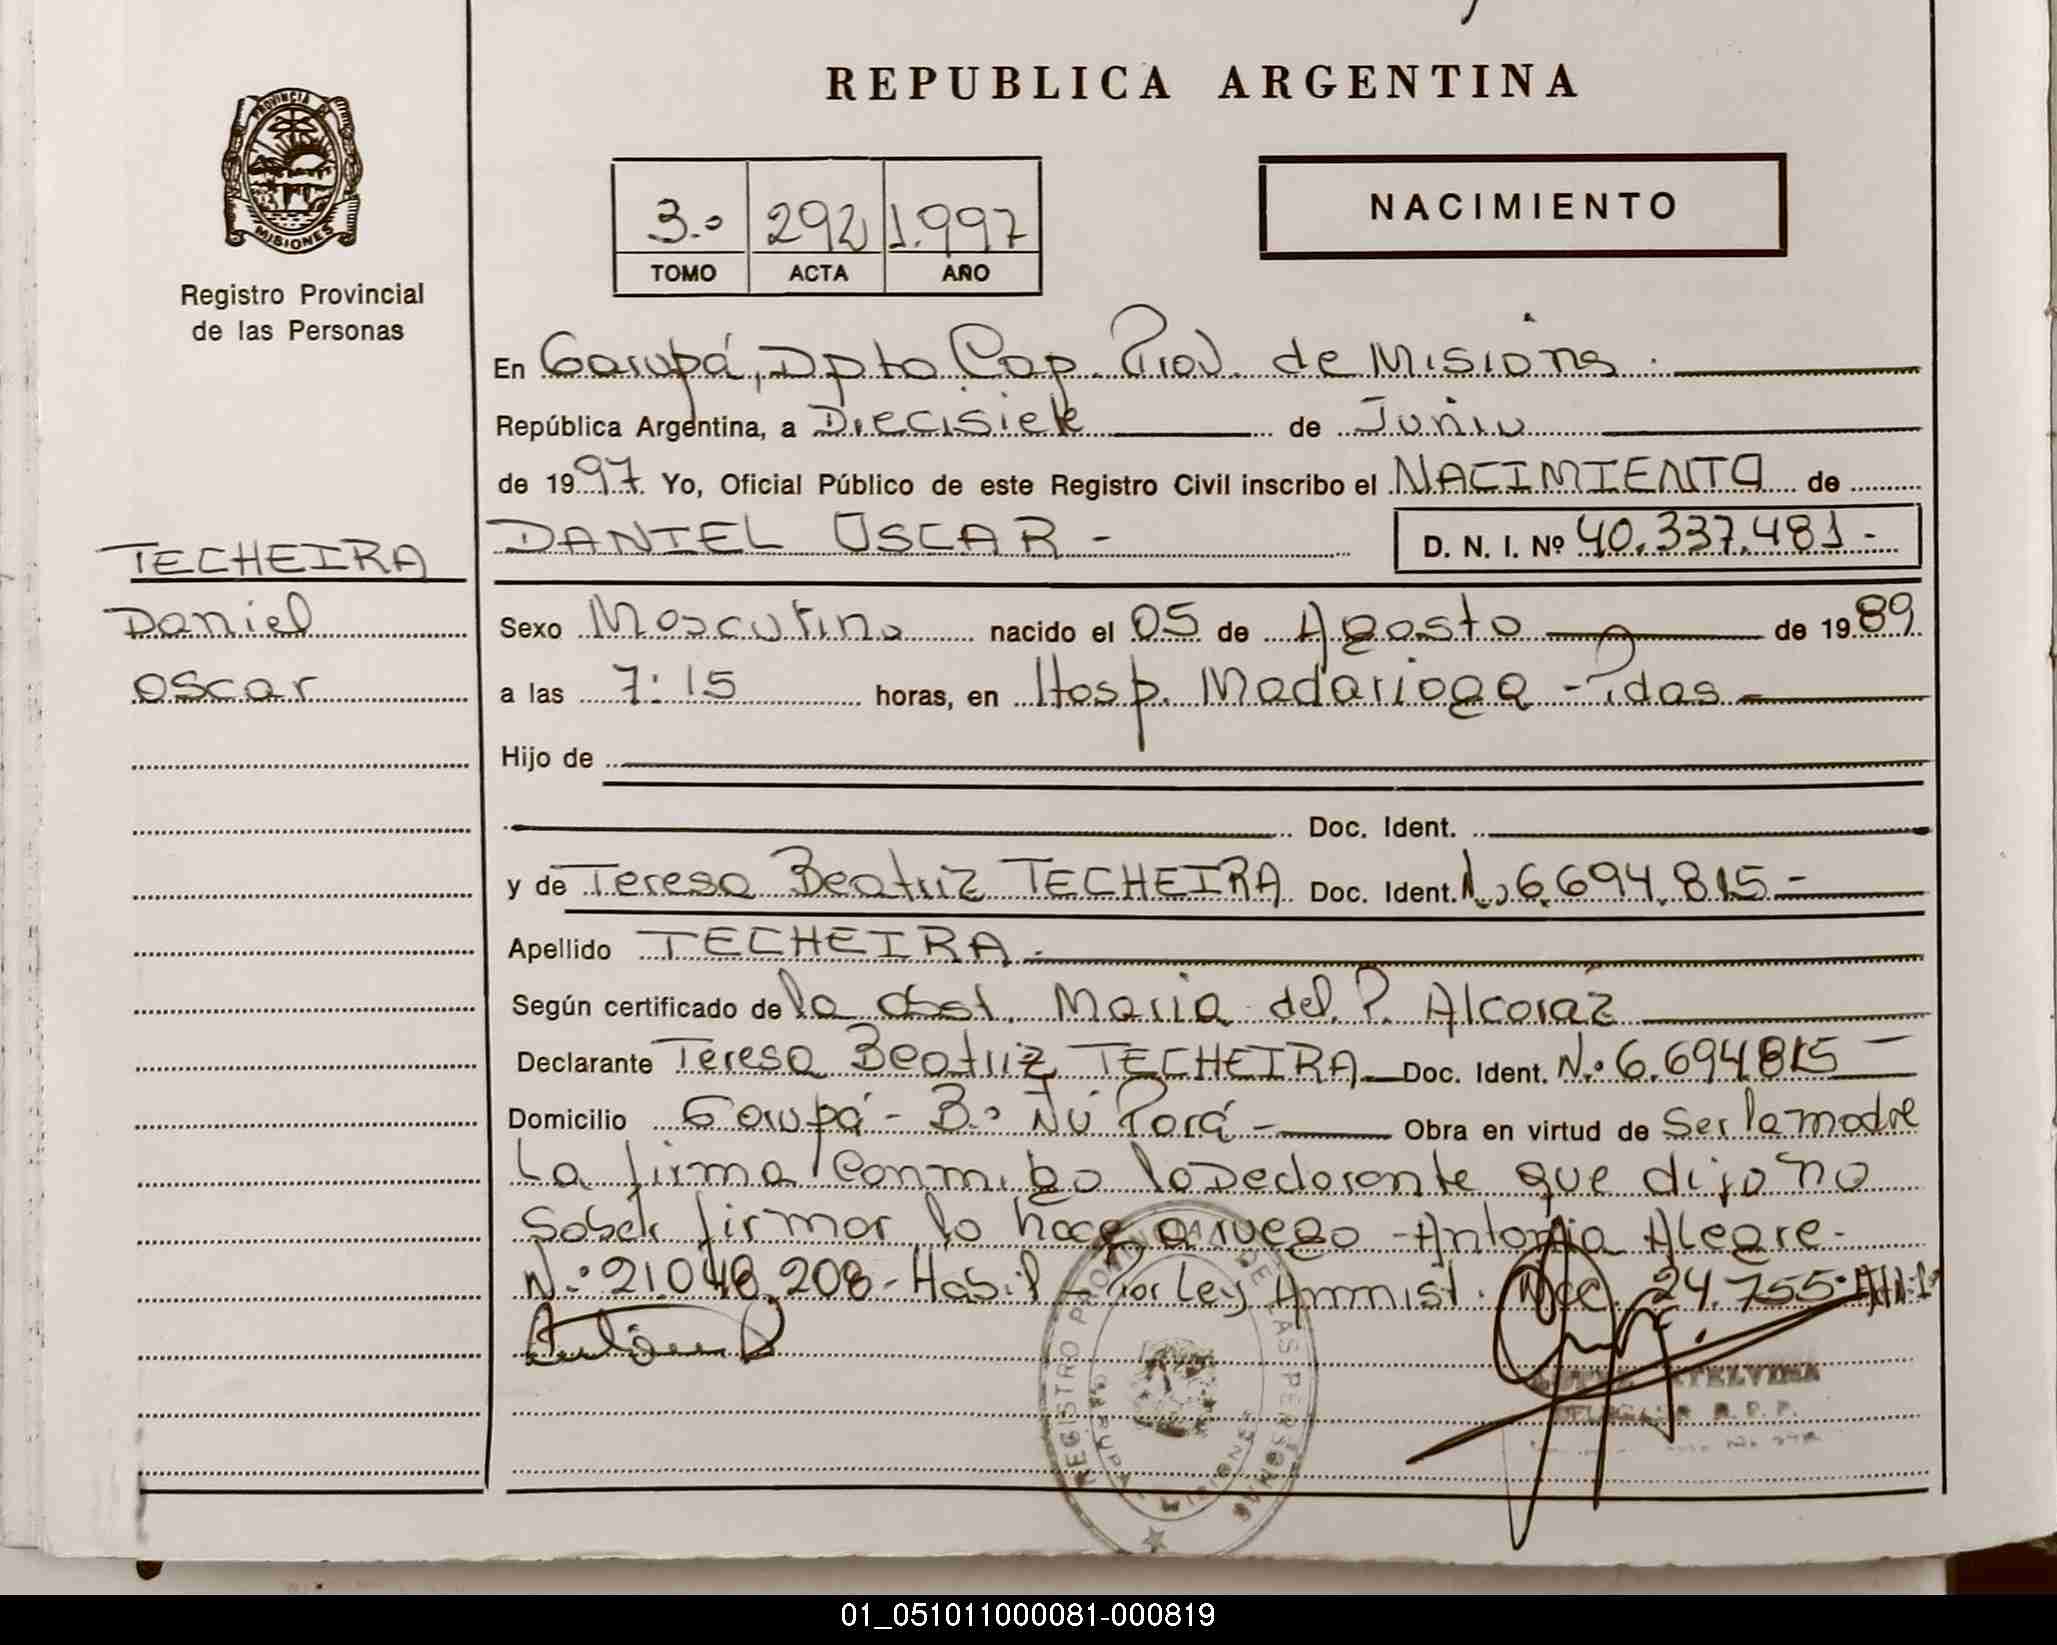 REPUBLICA ARGENTINA
PROVINCIA DE
MISIONES
Registro Provincial
de las Personas
3.º 292 1.997
TOMO ACTA AÑO
NACIMIENTO
En Garupá, Dpto Cap. Prov. de Misions.
República Argentina, a Diecisiete de Junio
de 1997. Yo, Oficial Público de este Registro Civil inscribo el NACIMIENTO de
DANIEL OSCAR - D. N. I. Nº 40.337.481-
TECHEIRA
Daniel
Oscar
Sexo Masculino nacido el 05 de Agosto de 1989
a las 7:15 horas, en Hosp. Madariaga - Pdas -
Hijo de
Doc. Ident.
y de Teresa Beatriz TECHEIRA Doc. Ident. N.º 6.694.815-
Apellido TECHEIRA.
Según certificado de la obst. Maria del P. Alcaráz
Declarante Teresa Beatriz TECHEIRA Doc. Ident. N.º 6.694.815-
Domicilio Garupá - B.º Ñú Porá - Obra en virtud de Ser la madre
La firma conmigo la Declarante que dijo no
Saber firmar lo hace a ruego - Antonia Alegre.
N.º 21.048.208 - Habil - Por Ley Amnist. Nac. 24.755.
REGISTRO PROVINCIAL DE LAS PERSONAS
GARUPA MISIONES
ETELVINA
DELEGADA R. P. P.
01_051011000081-000819